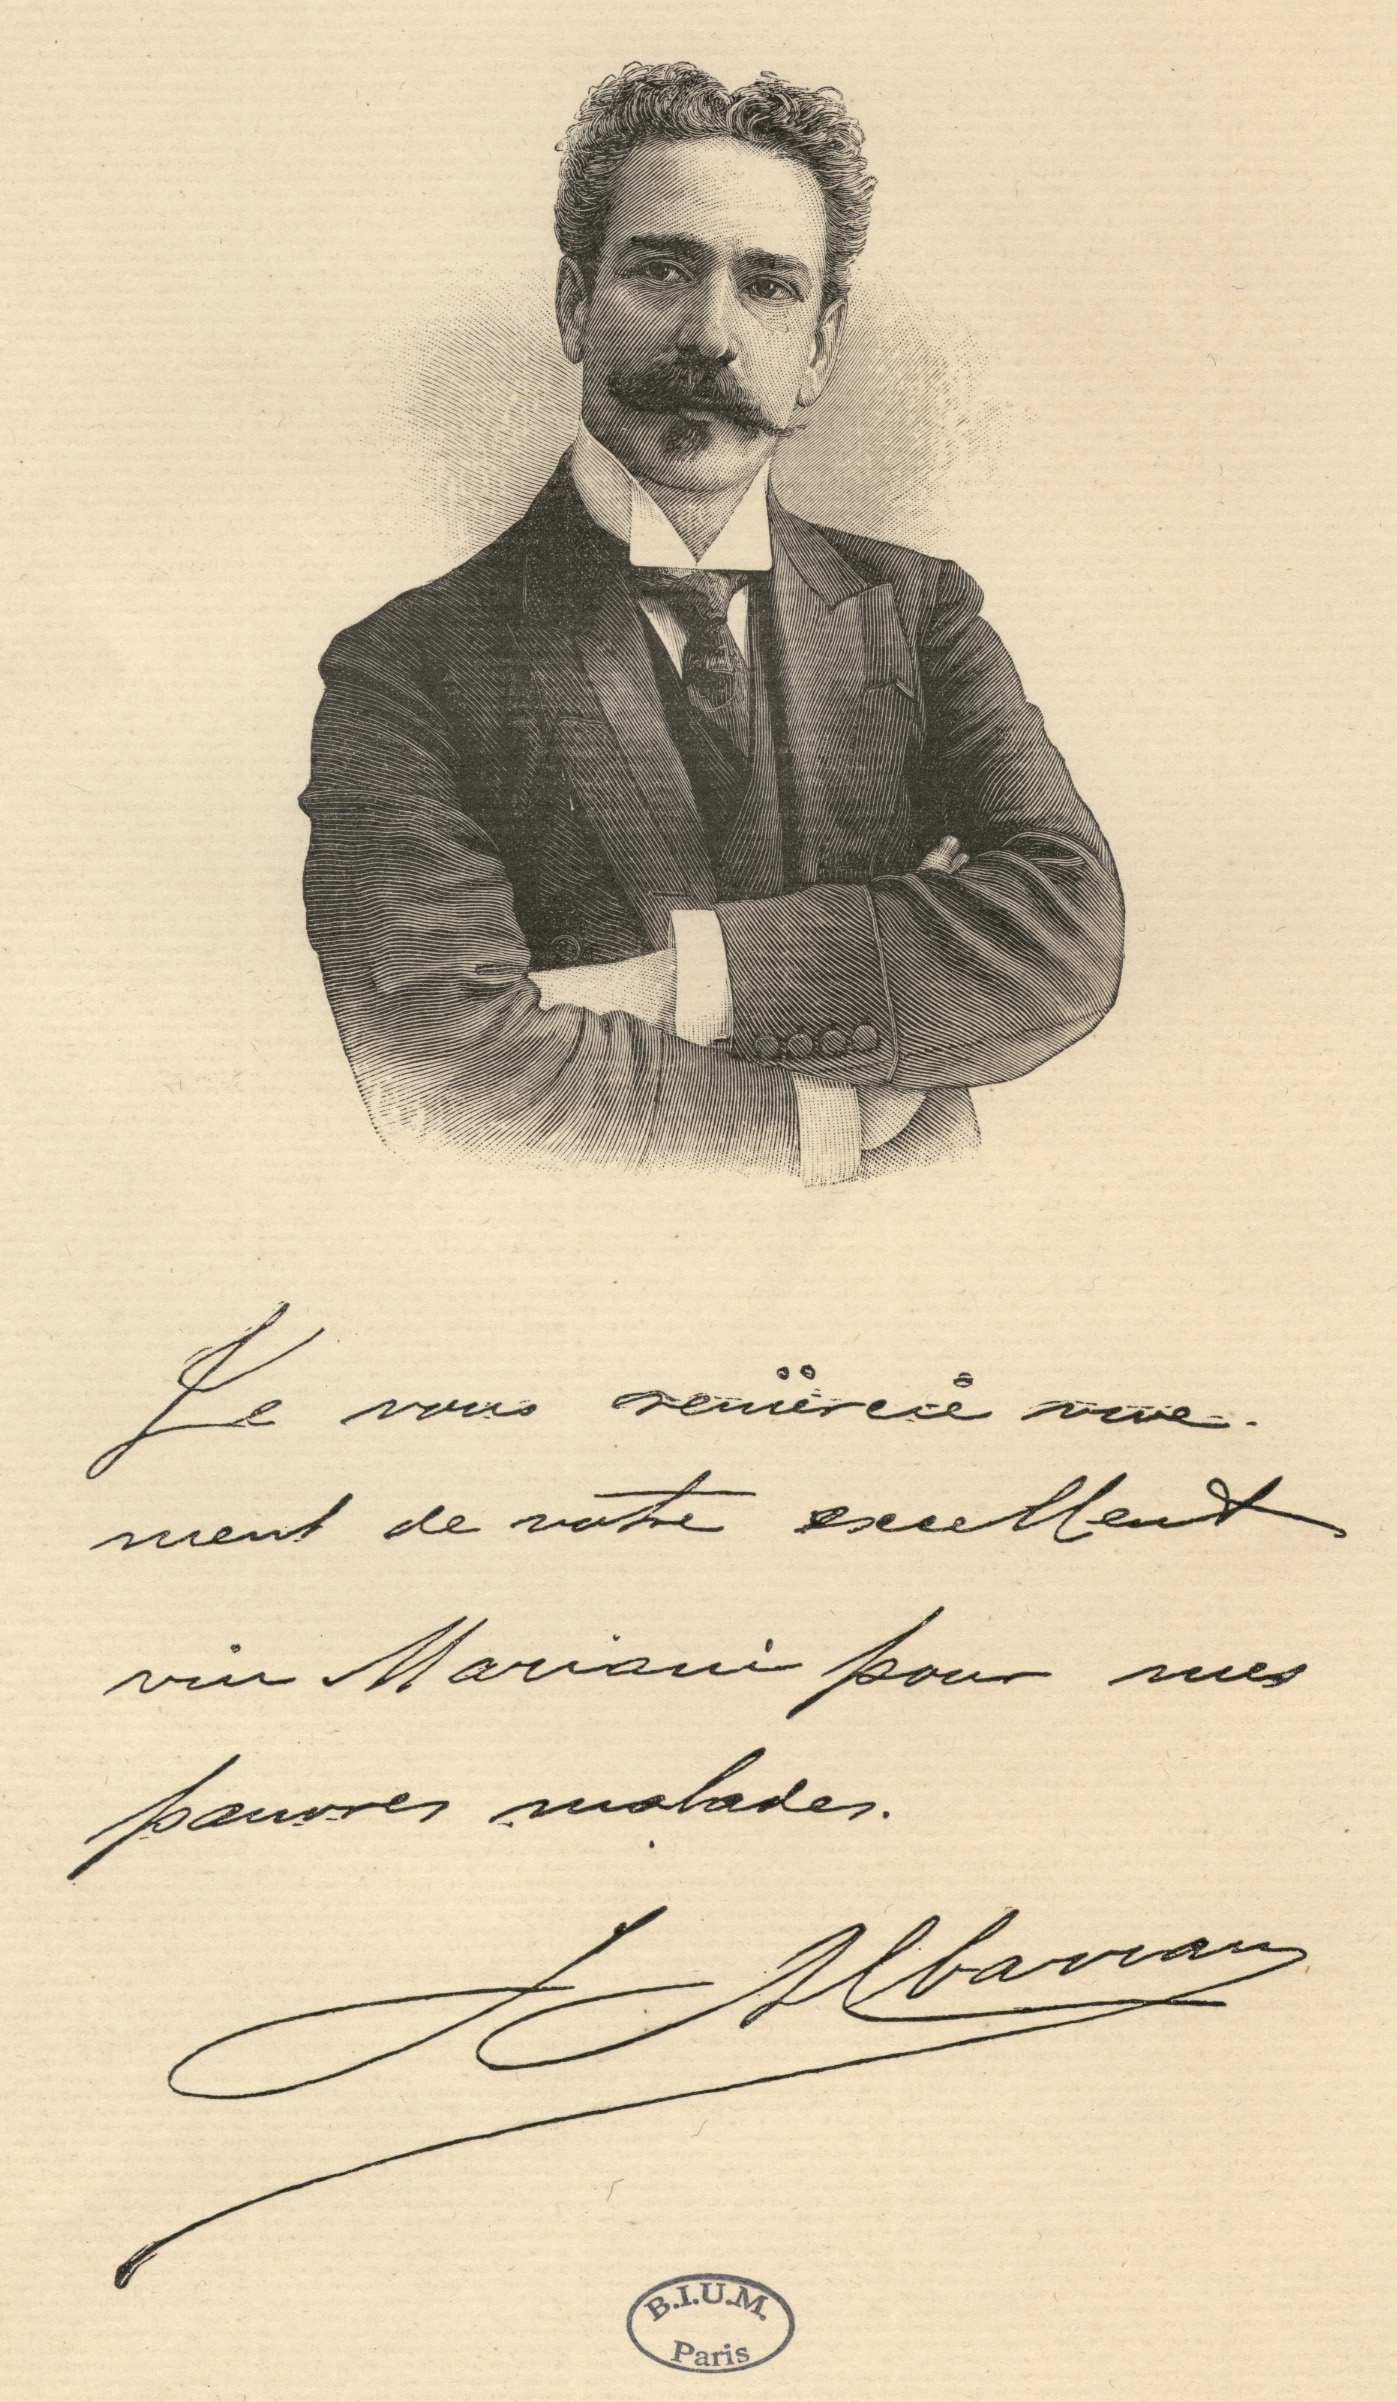 Je vous remercie vive-
ment de votre excellent
vin Mariani pour mes
pauvres malades.
J Albarran
B.I.U.M.
Paris